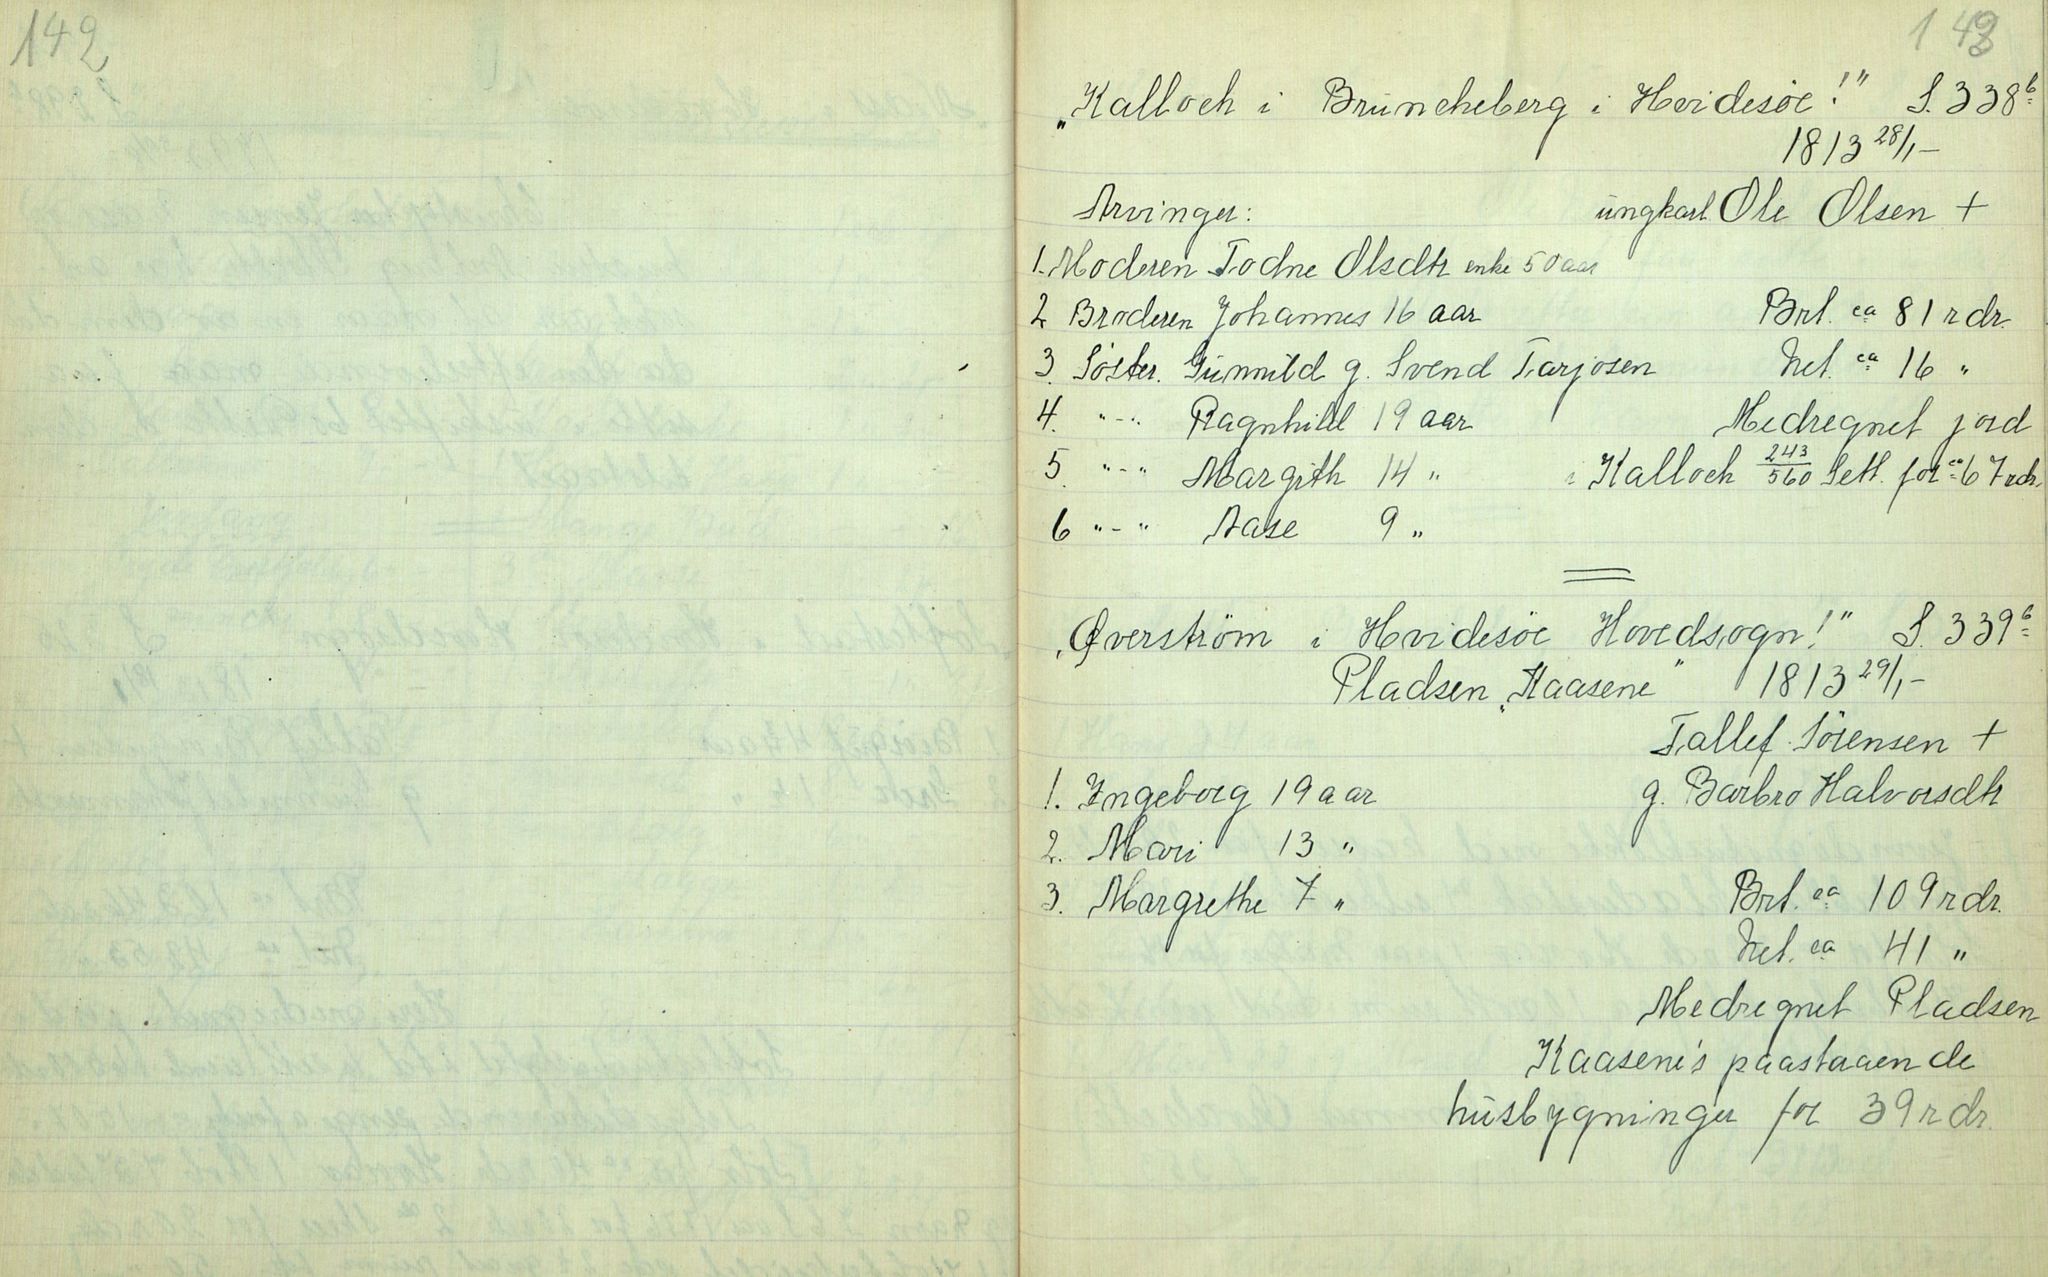 142
143
„Kalloch i Brüncheberg i Hvidesöe!" S. 338b
1813 28/1-
Arvinger: üngkarl Ole Olsen +
1. Moderen Todne Olsdtr enke 50 aar
2 Broderen Johannes 16 aar Brt. ca 81 rdr.
3. Söster. Günnild g. Svend Tarjosen Net. ca 16 "
4. "-" Ragnhild 19 aar Medregnet jord
5. "-" Margith 14 " i Kalloch 243/560 Setl. for ca 67 rdr.
6 "-" Aase 9 "
„Øverström i Hvidesöe Hovedsogn!" S. 339b
Pladsen „Kaasene" 1813 29/1-
Tallef Sörensen +
1. Ingeborg 19 aar g. Barbro Halvorsdtr
2. Mari 13 "
3. Margrethe 7 " Brt. ca 109 rdr.
Net. ca 41 "
Medregnet Pladsen
Kaasene's paastaaende
hüsbygninger for 39 rdr.